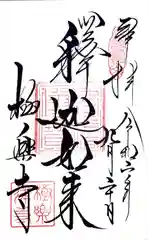 奉拝
令和六年
釋迦如来
極樂寺